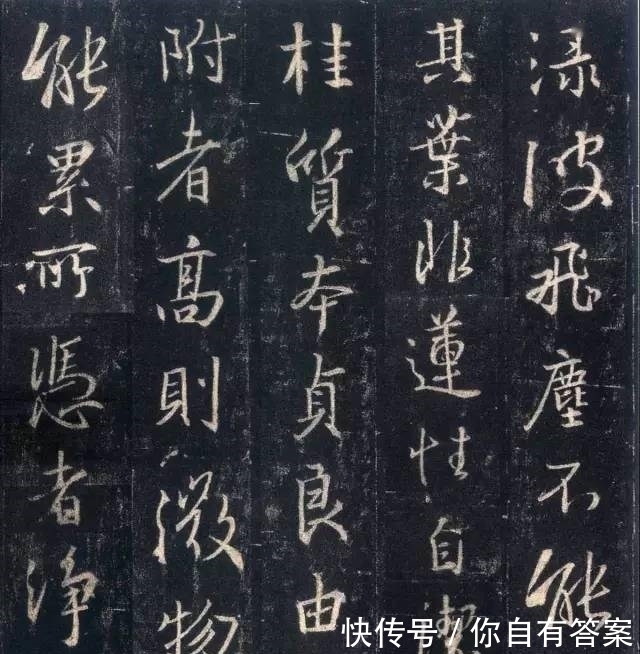 渌波飛塵不能
其葉非蓮性自潔
桂質本貞良由
附者高則微物
能累所憑者淨
快传号 / 你自有答案